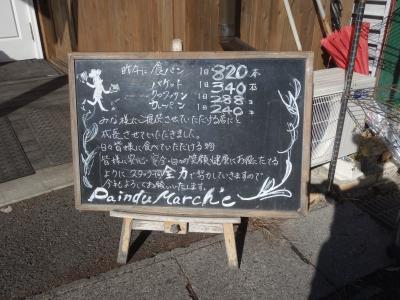 昨年は食パン 1日820本
バケット 1日340本
クロワッサン 1日288コ
カレーパン 1日240コ
みな様にご提供させていただける店にと
成長させていただきました。
日々皆様に食べていただける物
皆様に安心・安全・日々の笑顔、健康にお役にたてる
ように スタッフ一同 全力で努力していきますので
今年もよろしくお願いいたします。
Pain du Marche